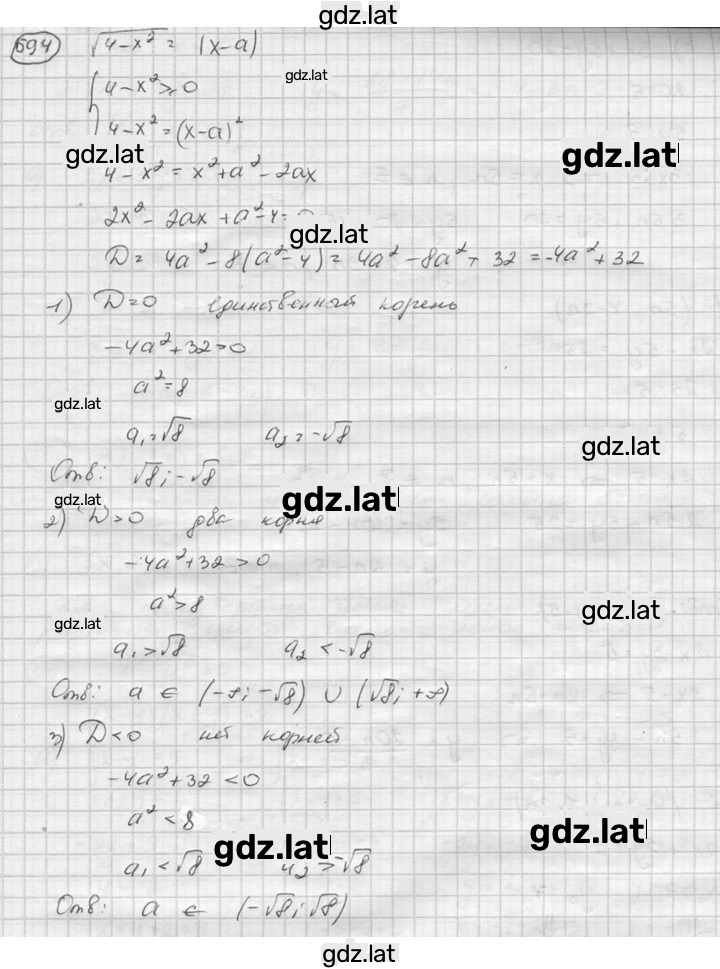 gdz.lat
694 √4-x² = |x-a|
gdz.lat
4-x² ≥ 0
4-x² = (x-a)²
gdz.lat gdz.lat
4-x² = x² + a² - 2ax
2x² - 2ax + a² - 4 =
gdz.lat
D = 4a² - 8(a² - 4) = 4a² - 8a² + 32 = -4a² + 32
1) D=0 единственный корень
-4a² + 32 = 0
a² = 8
gdz.lat
a₁ = √8 a₂ = -√8
gdz.lat
Отв: √8; -√8
gdz.lat gdz.lat
2) D>0 два корня
-4a² + 32 > 0
a² > 8
gdz.lat
gdz.lat
a₁ > √8 a₂ < -√8
Отв: a ∈ (-∞; -√8) ∪ (√8; +∞)
3) D<0 нет корней
-4a² + 32 < 0
a² < 8
gdz.lat gdz.lat
a₁ < √8 a₂ > -√8
Отв: a ∈ (-√8; √8)
gdz.lat